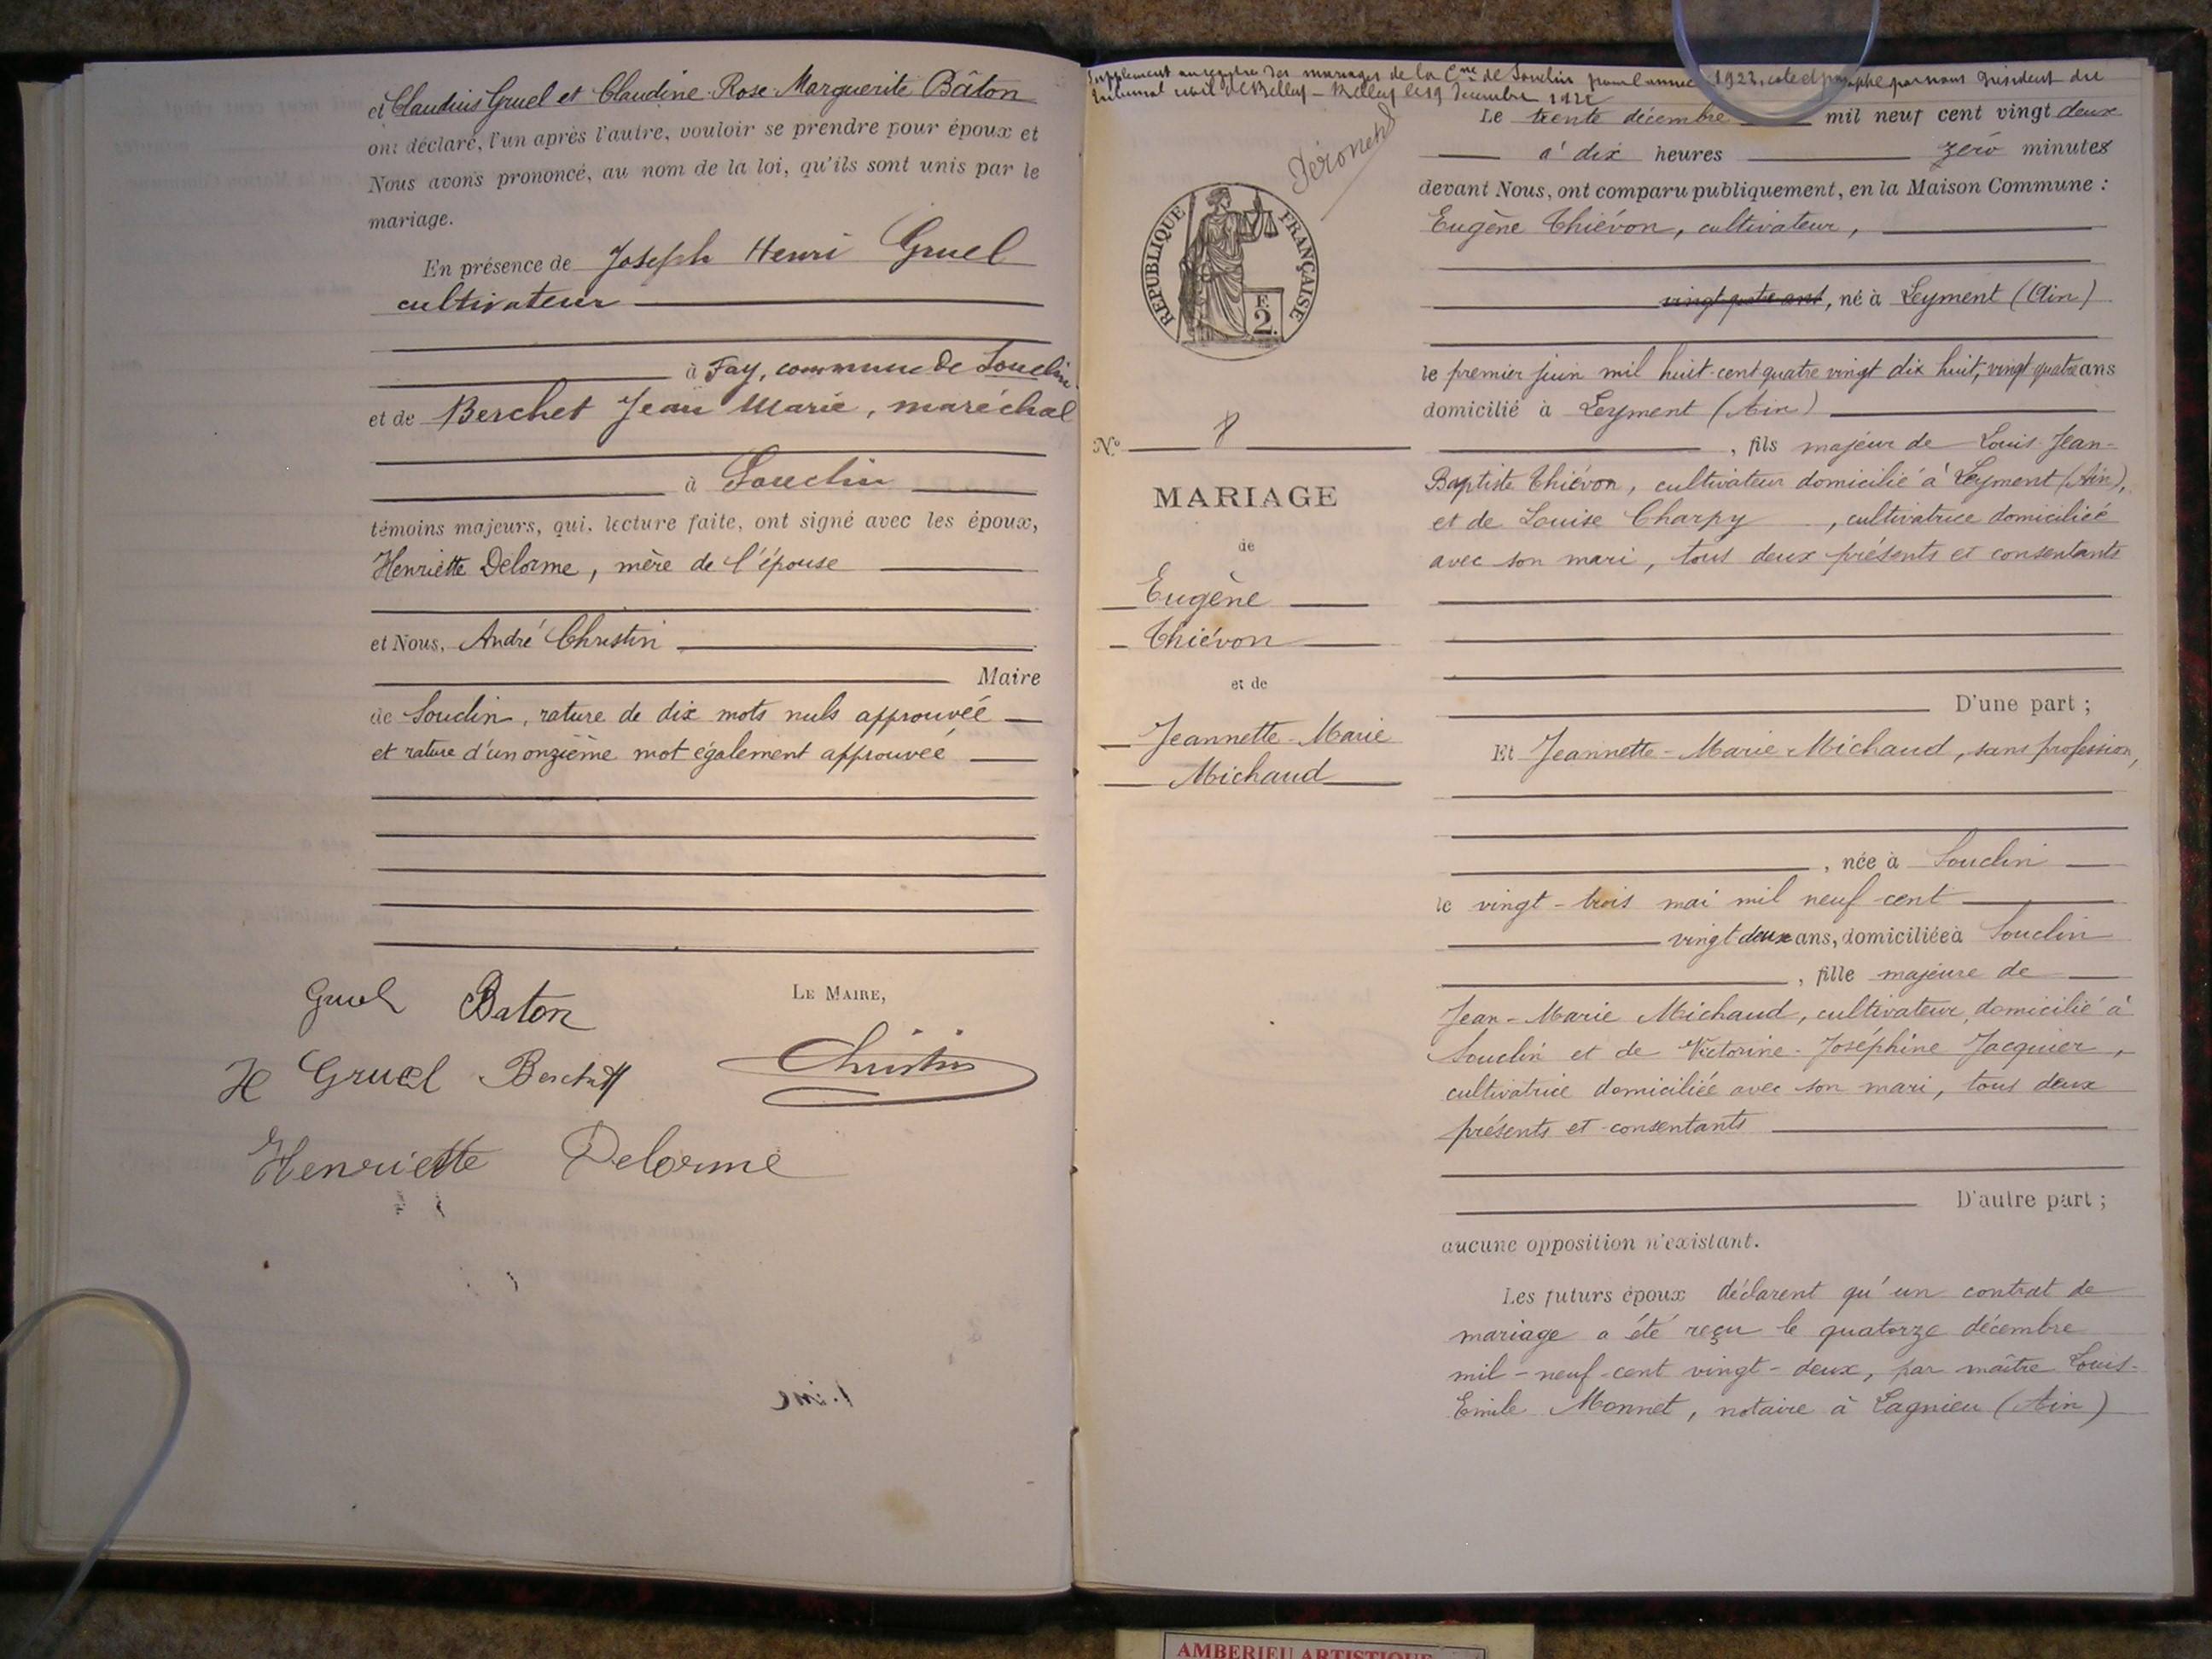 et Claudius Gruel et Claudine-Rose-Marguerite Bâton
ont déclaré, l'un après l'autre, vouloir se prendre pour époux et
Nous avons prononcé, au nom de la loi, qu'ils sont unis par le
mariage.
En présence de Joseph Henri Gruel
cultivateur
à Fay, commune de Souclin
et de Berchet Jean Marie, maréchal
à Souclin
témoins majeurs, qui, lecture faite, ont signé avec les époux,
Henriette Delorme, mère de l'épouse
et Nous, André Christin
Maire
de Souclin, rature de dix mots nuls approuvée
et rature d'un onzième mot également approuvée
Gruel Baton
LE MAIRE,
H Gruel Berchet Christin
Henriette Delorme
Supplément au registre des mariages de la Cne de Souclin pour l'année 1922, coté et paraphé par nous Président du
tribunal civil de Belley - Belley le 19 Décembre 1922
Le trente décembre mil neuf cent vingt deux
à dix heures zéro minutes
devant Nous, ont comparu publiquement, en la Maison Commune :
Eugène Thiévon, cultivateur,
RÉPUBLIQUE FRANÇAISE
F.
2.
vingt-quatre ans, né à Leyment (Ain)
le premier juin mil huit-cent quatre vingt dix huit, vingt-quatre ans
domicilié à Leyment (Ain)
No 8
, fils majeur de Louis-Jean-
Baptiste Thiévon, cultivateur domicilié à Leyment (Ain),
et de Louise Charpy , cultivatrice domiciliée
avec son mari, tous deux présents et consentants
MARIAGE
de
Eugène
Thiévon
et de
Jeannette-Marie
Michaud
D'une part ;
Et Jeannette-Marie Michaud, sans profession,
, née à Souclin
le vingt-trois mai mil neuf cent
vingt-deux ans, domiciliée à Souclin
, fille majeure de
Jean-Marie Michaud, cultivateur, domicilié à
Souclin et de Victorine-Joséphine Jacquier,
cultivatrice domiciliée avec son mari, tous deux
présents et consentants
D'autre part ;
aucune opposition n'existant.
Les futurs époux déclarent qu'un contrat de
mariage a été reçu le quatorze décembre
mil-neuf-cent vingt-deux, par maître Louis-
Emile Monnet, notaire à Lagnieu (Ain)
AMBERIEU ARTISTIQUE